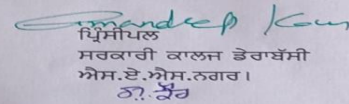 Amandeep Kaur
ਪ੍ਰਿੰਸੀਪਲ
ਸਰਕਾਰੀ ਕਾਲਜ ਡੇਰਾਬੱਸੀ
ਐਸ.ਏ.ਐਸ.ਨਗਰ।